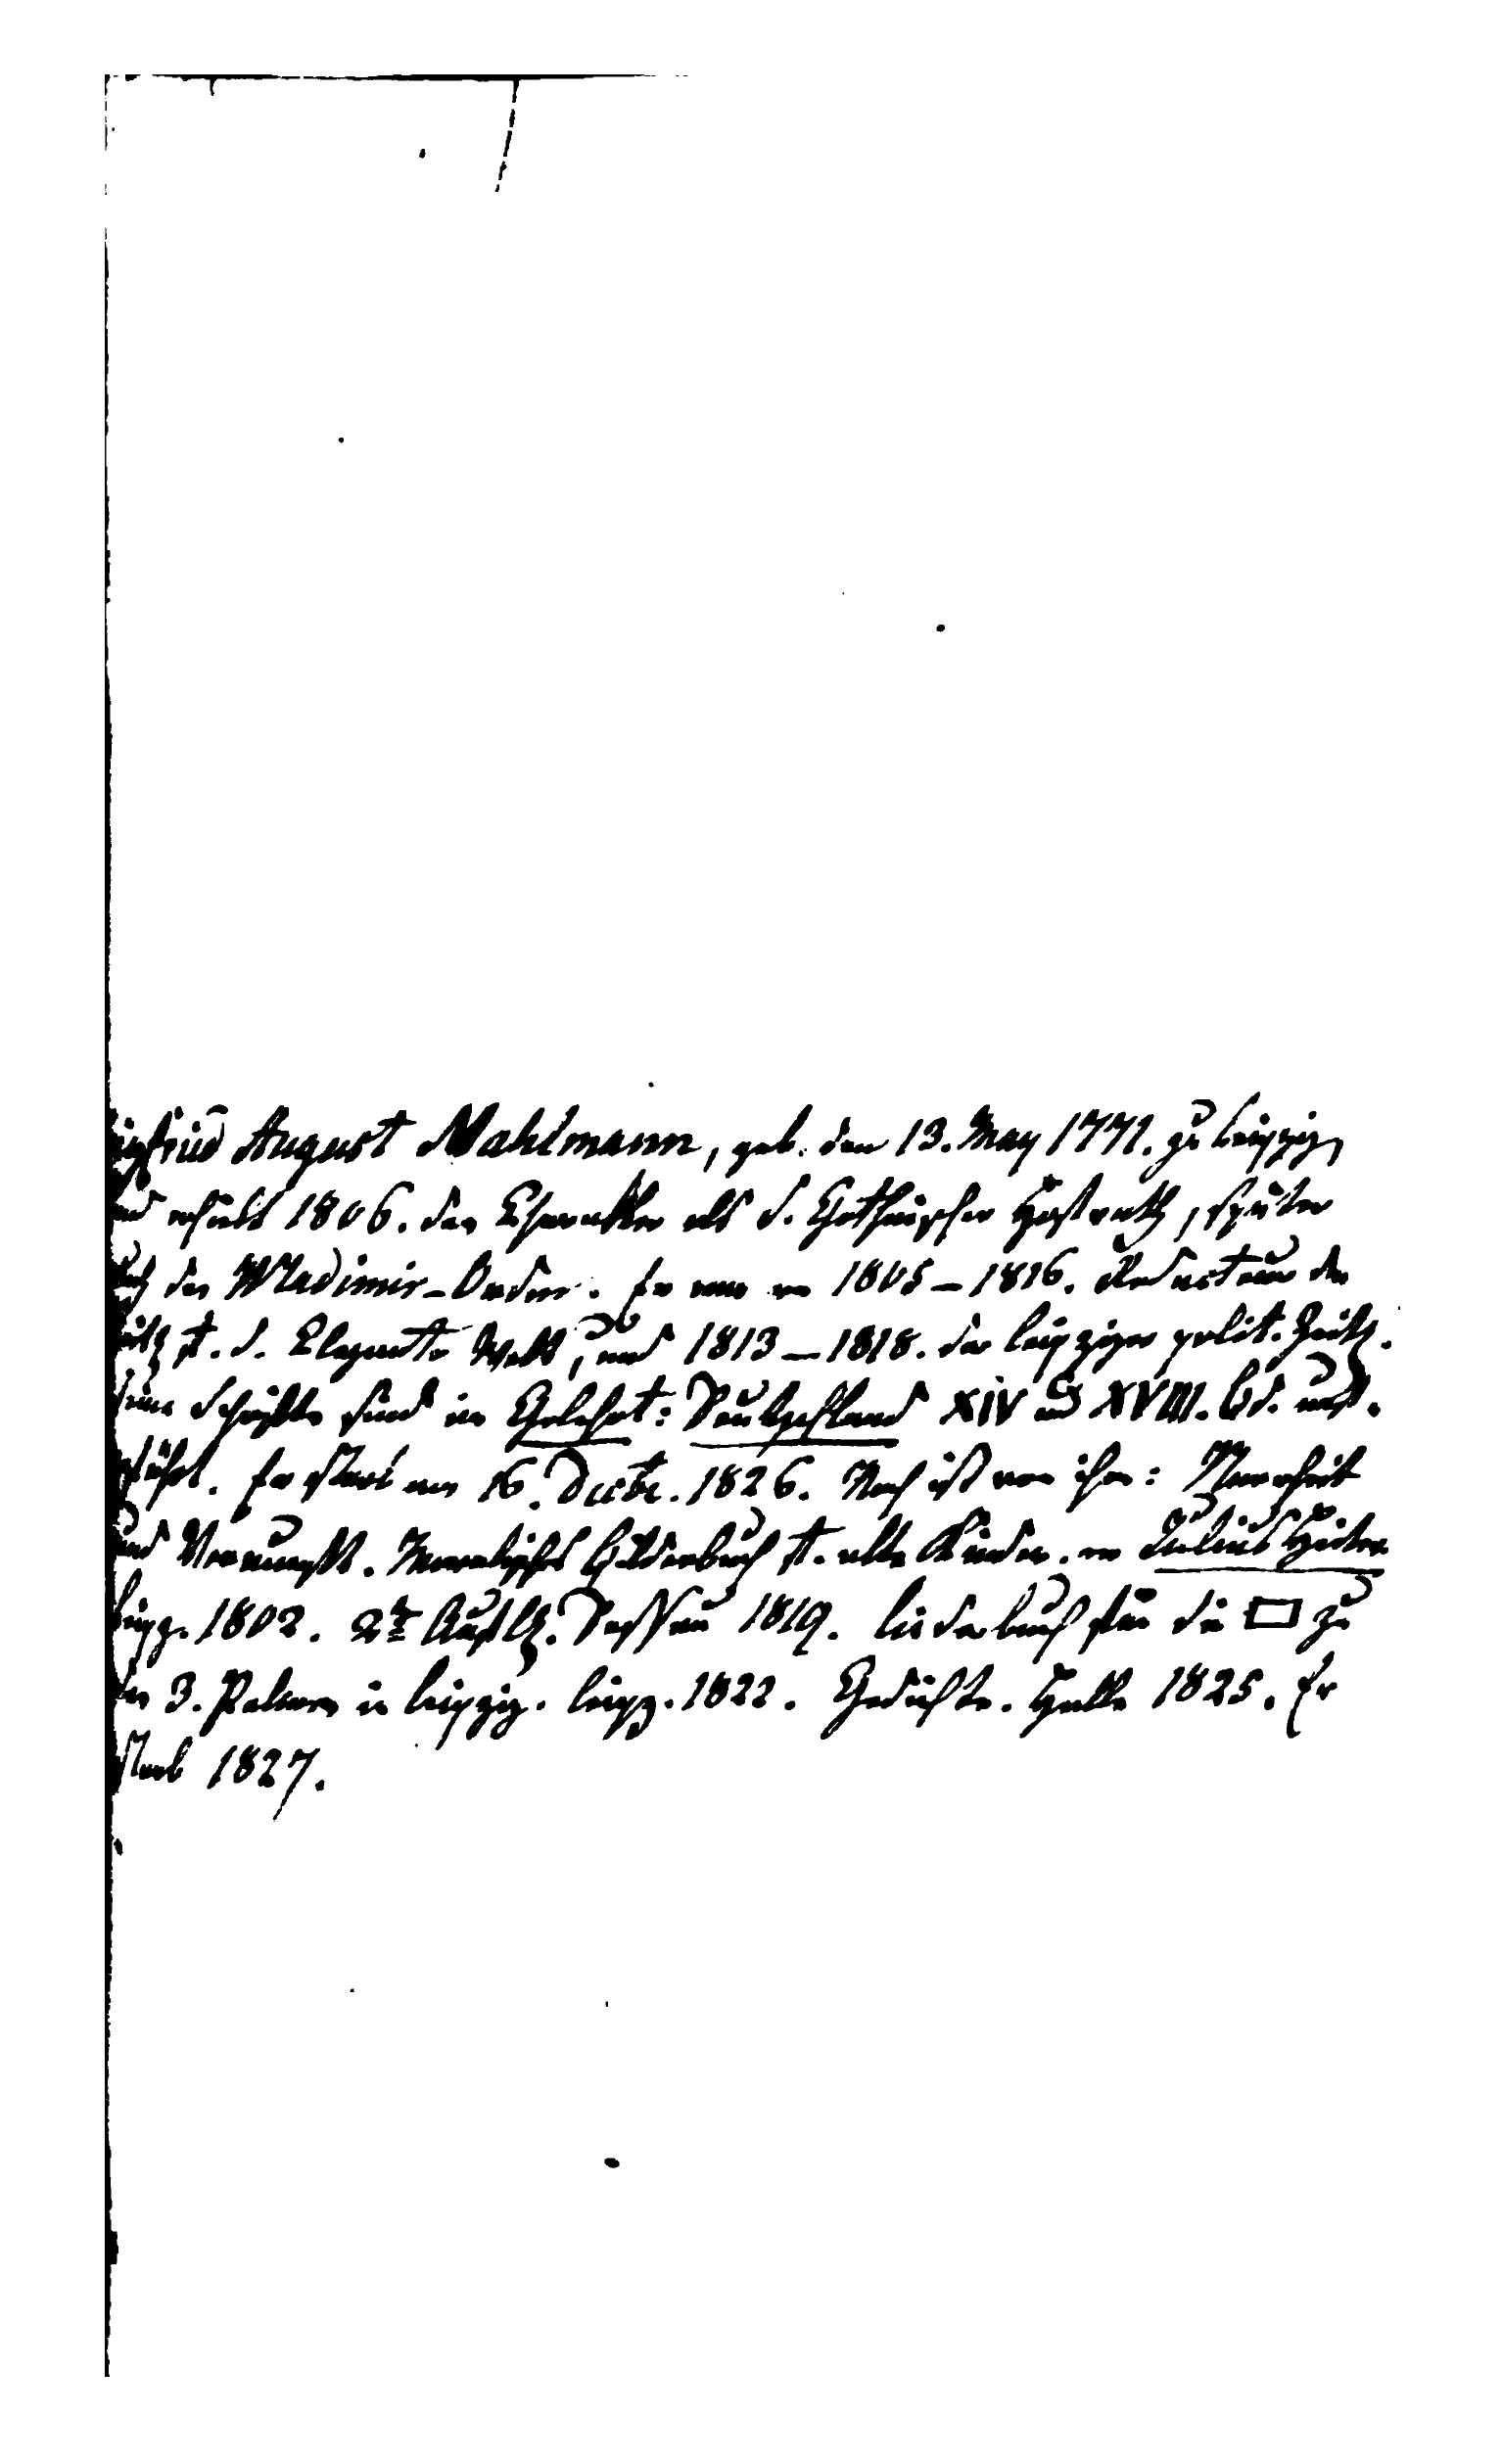 igfried August Mahlmann, geb. den 13. May 1771. zu Leipzig,
nd erhielt 1806. den Charakter als S. Gothaischer Hofrath, später
uch den Wladimir-Orden. Er war von 1805–1816. Redacteur der
eitg f. d. Elegante Welt, und 1813–1818. der Leipziger polit. Zeitg.
eine Schriften sind im Gelehrt: Deutschland XIV und XVIII. Bd. auf-
eführt. Er starb am 16. Decbr. 1826. Noch ist von ihm: Narrheit
und Vernunft. Moralisches Bilderbuch f. alte Kinder. von Julius Heiter
Leipzg. 1802. 2te Auflg. Dessau 1819. Liederbuch für die ▭ zu
den 3. Palmen in Leipzig. Leipz. 1822. Gedichte. Halle 1825. Er
starb 1827.